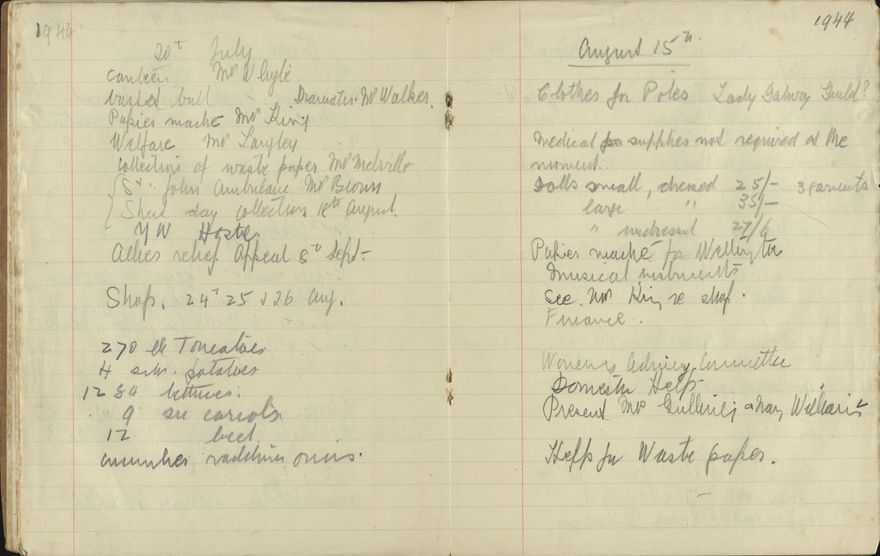 1944
20th July
Canteen Mrs Wylie
basket ball Dramatic Mr Walker.
Papier maché Mrs King
Welfare Mrs Langley
Collection of waste paper Mrs Melville
St. John Ambulance Mrs Brown
Street day collection 18th August.
YW Hostel
Allies relief Appeal 8th Sept-
Shop. 24th 25 & 26 Aug.
270 lb Tomatoes
4 potatoes
12 lettuces.
9 carrots
12 beet
cucumber radishes onions.
1944
August 15th
Clothes for Poles Lady Galway Guild?
Medical supplies not required at the
moment.
Dolls small, dressed 25/- 3 garments
large " 35/-
" undressed 27/6
Papier maché for Wellington
Musical instruments.
See Mrs King re shop.
Finance.
Womens Advisory Committee
Domestic Help
Present Mrs & Mary Williams
Help for Waste paper.